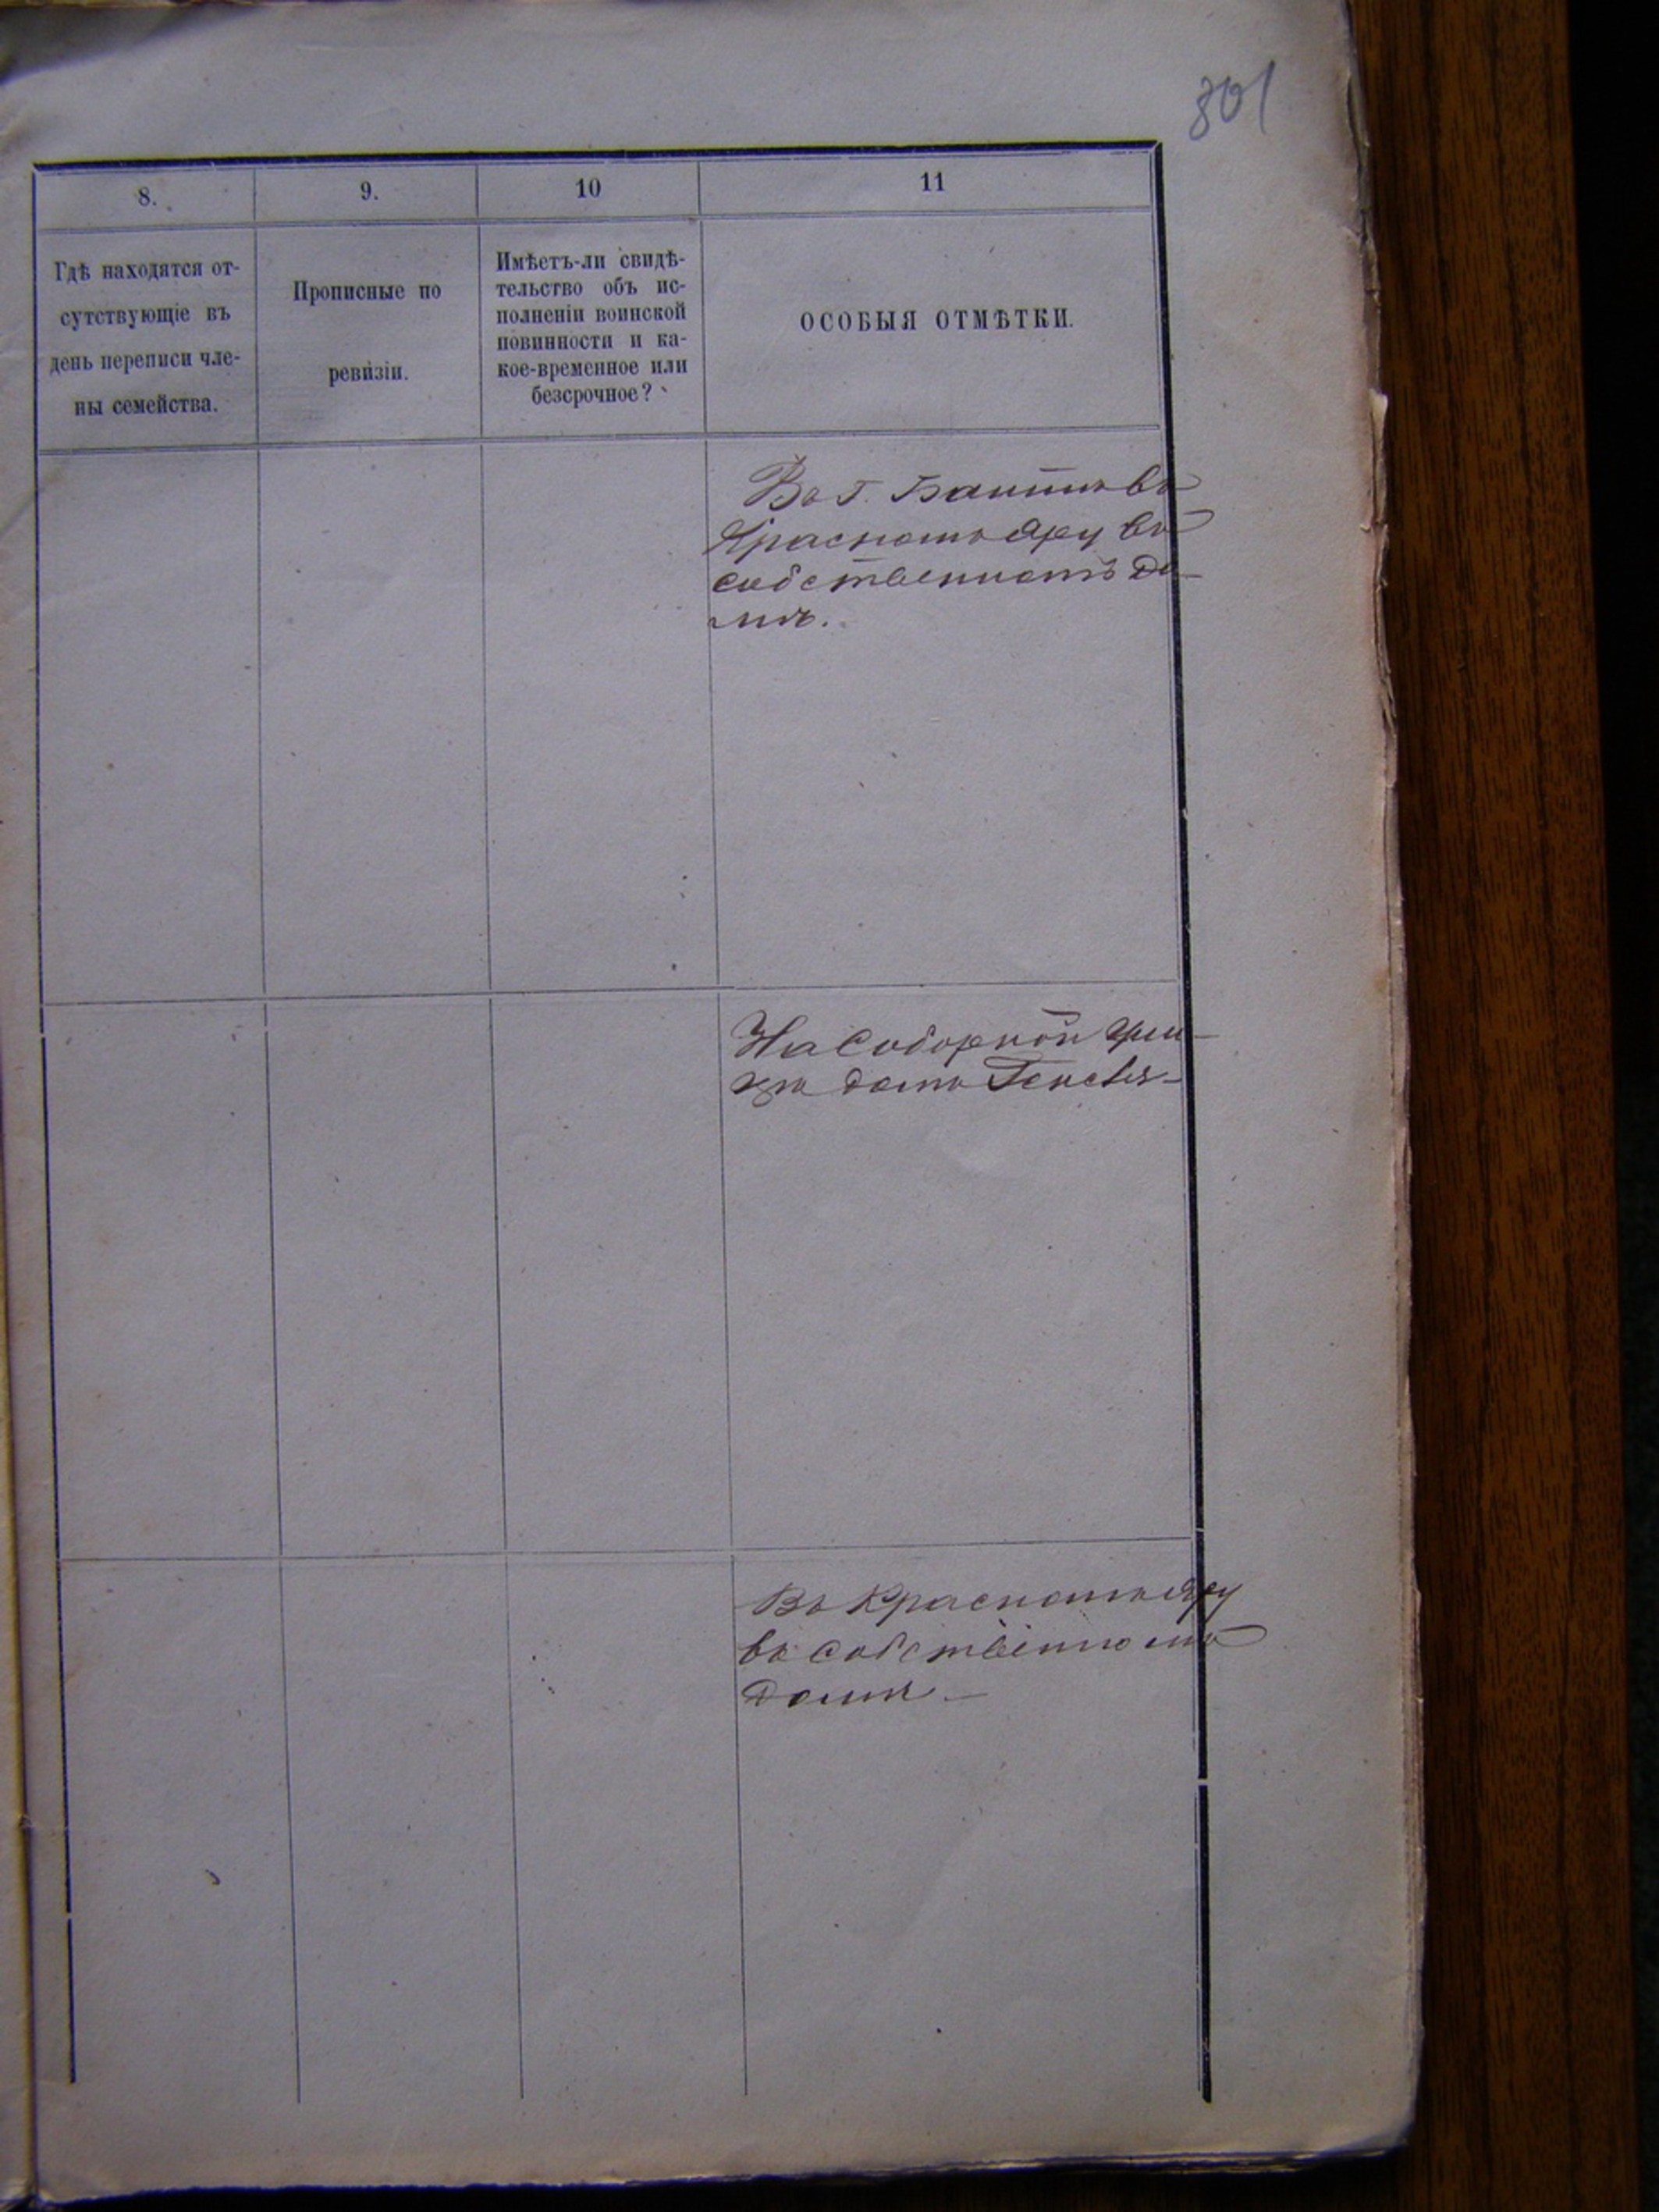 801
8. 9. 10 11
Гдѣ находятся от-
сутствующіе въ
день переписи чле-
ны семейства.
Прописные по
ревизіи.
Имѣетъ-ли свидѣ-
тельство объ ис-
полненіи воинской
повинности и ка-
кое-временное или
безсрочное?
ОСОБЫЯ ОТМѢТКИ.
Въ г. въ
Красномъ Яру въ
собственномъ до-
мѣ.
На Соборной ули-
цѣ домъ
Въ Красномъ Яру
въ собственномъ
домѣ. —